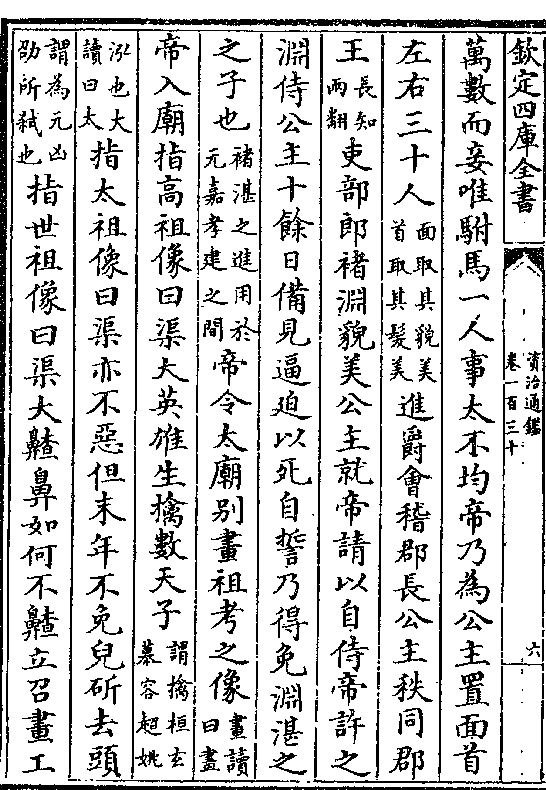 欽定四庫全書
資治通鑑
卷一百三十
六
萬數而妾唯駙馬一人事太不均帝乃為公主置面首
左右三十人面取其貌美首取其髮美進爵會稽郡長公主秩同郡
王長知兩翻吏部郎褚淵貌美公主就帝請以自侍帝許之
淵侍公主十餘日備見逼迫以死自誓乃得免淵湛之
之子也褚湛之進用於元嘉孝建之間帝令太廟别畫祖考之像畫讀曰畫
帝入廟指高祖像曰渠大英雄生擒數天子謂擒桓玄慕容超姚
泓也大讀曰太指太祖像曰渠亦不惡但末年不免兒斫去頭
謂為元凶劭所弑也指世祖像曰渠大齄鼻如何不齄立召畫工